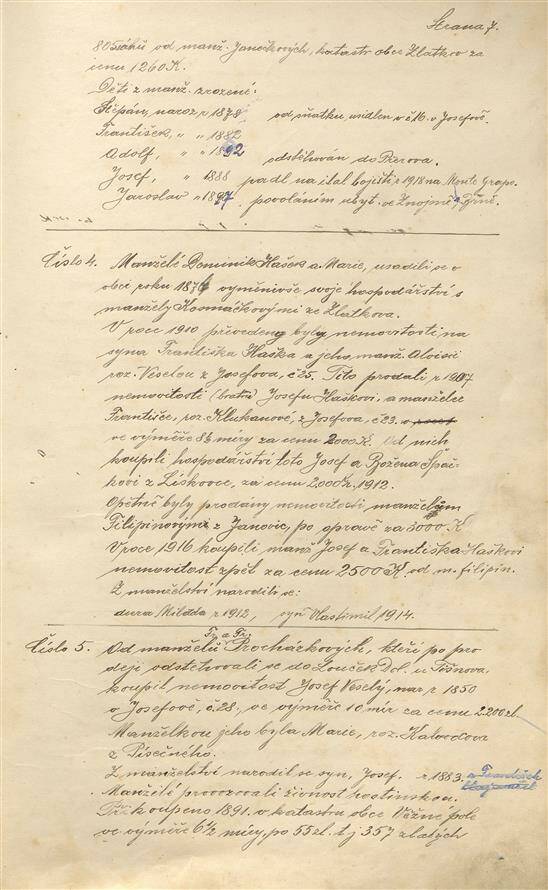 Strana 7.
805 sáhů od manž. Janečkových, katastr obce Zlatkov za
cenu 1260 K.
Děti z manž. zrozené:
Štěpán, naroz. r 1878 od sňatku, usídlen v č 16. v Josefově.
František, " " 1882
Adolf, " " 1892 odstěhován do Přerova.
Josef, " 1888 padl na ital. bojišti r 1918 na Monte Grape.
Jaroslav " 1897, povoláním ubyt. ve Znojmě,
Číslo 4. Manželé Dominik Hašek a Marie, usadili se v
obce roku 1876 vyměnivše svoje hospodářství s
manžely Kosmáčkovými ze Zlatkova.
V roce 1910 převedeny byly nemovitosti na
syna Františka Haška a jeho manž. Aloisii
roz. Veselou z Josefova, č 25. Tito prodali r 1907
nemovitosti (bratru) Josefu Haškovi, a manželce
Františce, roz. Klukanové, z Josefova, č 23.
ve výměře 8½ míry za cenu 2000 K. Od nich
koupili hospodářství toto Josef a Božena Špač-
kovi z Liskovce, za cenu 2000 K. 1912.
Opětně byly prodány nemovitosti manželům
Filipinovým z Janovic, po opravě za 3000 K
V roce 1916 koupili manž Josef a Františka Haškovi
nemovitost zpět za cenu 2500 K. od m. filipin.
Z manželství narodili se:
dcera Milada r 1912, syn Vlastimil 1914.
Fr. a Fr.
Číslo 5. Od manželů Procházkových, kteří po pro
deji odstěhovali se do Louček Dol. u Tišnova,
koupil nemovitost Josef Veselý, nar. r 1850
v Josefově, č. 28., ve výměře 10 mír za cenu 2.200 zl.
Manželkou jeho byla Marie, roz. Kalvodova
z Písečného.
Z manželství narodil se syn, Josef. r 1883. a František
Manželé provozovali živnost hostinskou.
Při koupeno 1891. v katastru obce Věžné pole
ve výměře 6½ míry, po 55 zl. t. j 357 zlatých